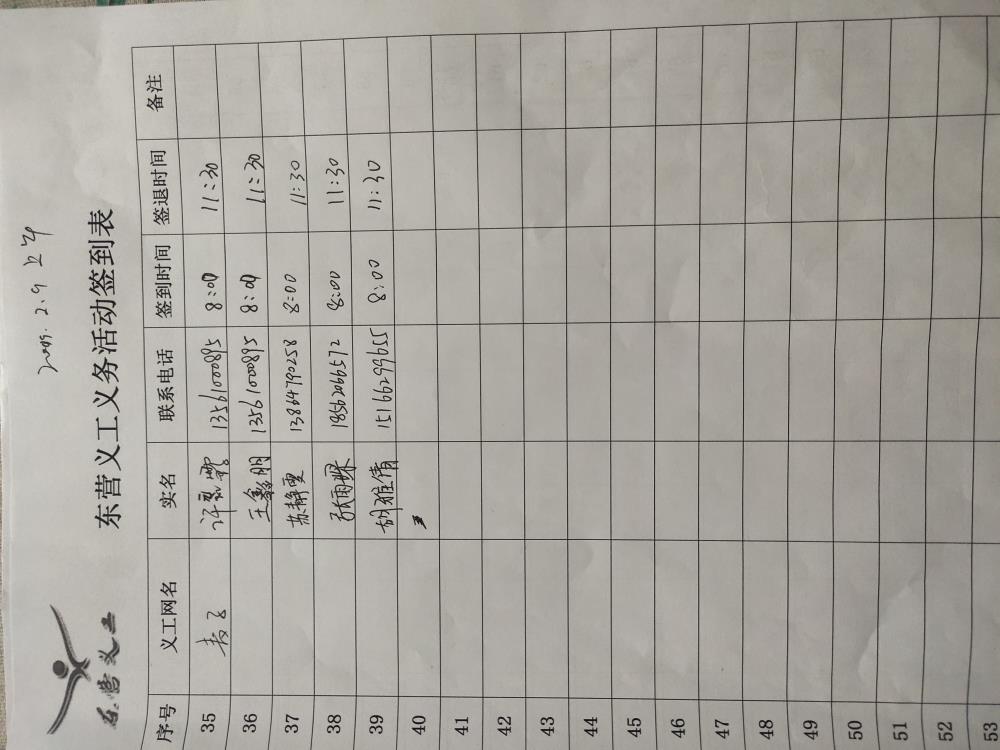 2009.2.9 上午
东营义工
东营义工义务活动签到表
序号 义工网名 实名 联系电话 签到时间 签退时间 备注
35 13561000895 8:00 11:30
36 王鑫朋 13561000895 8:00 11:30
37 苏静雯 13864790258 8:00 11:30
38 张雨琛 18562066572 8:00 11:30
39 胡雅倩 15166299655 8:00 11:30
40
41
42
43
44
45
46
47
48
49
50
51
52
53